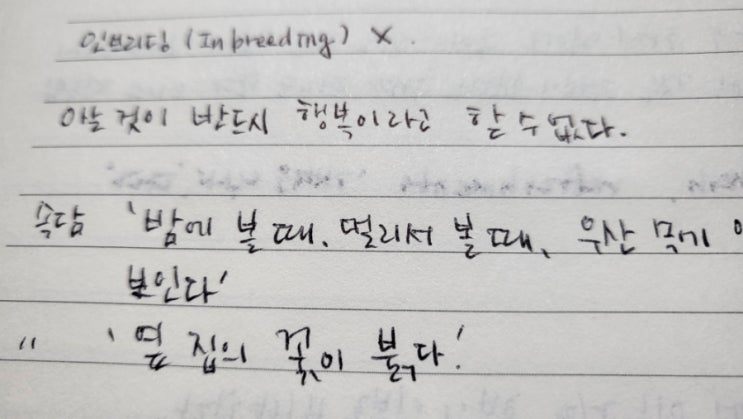 인브리딩 (Inbreeding) X.
아는 것이 반드시 행복이라고 할 수 없다.
속담 '밤에 볼 때, 멀리서 볼 때, 우산
보인다'
" '옆 집의 꽃이 붉다.'